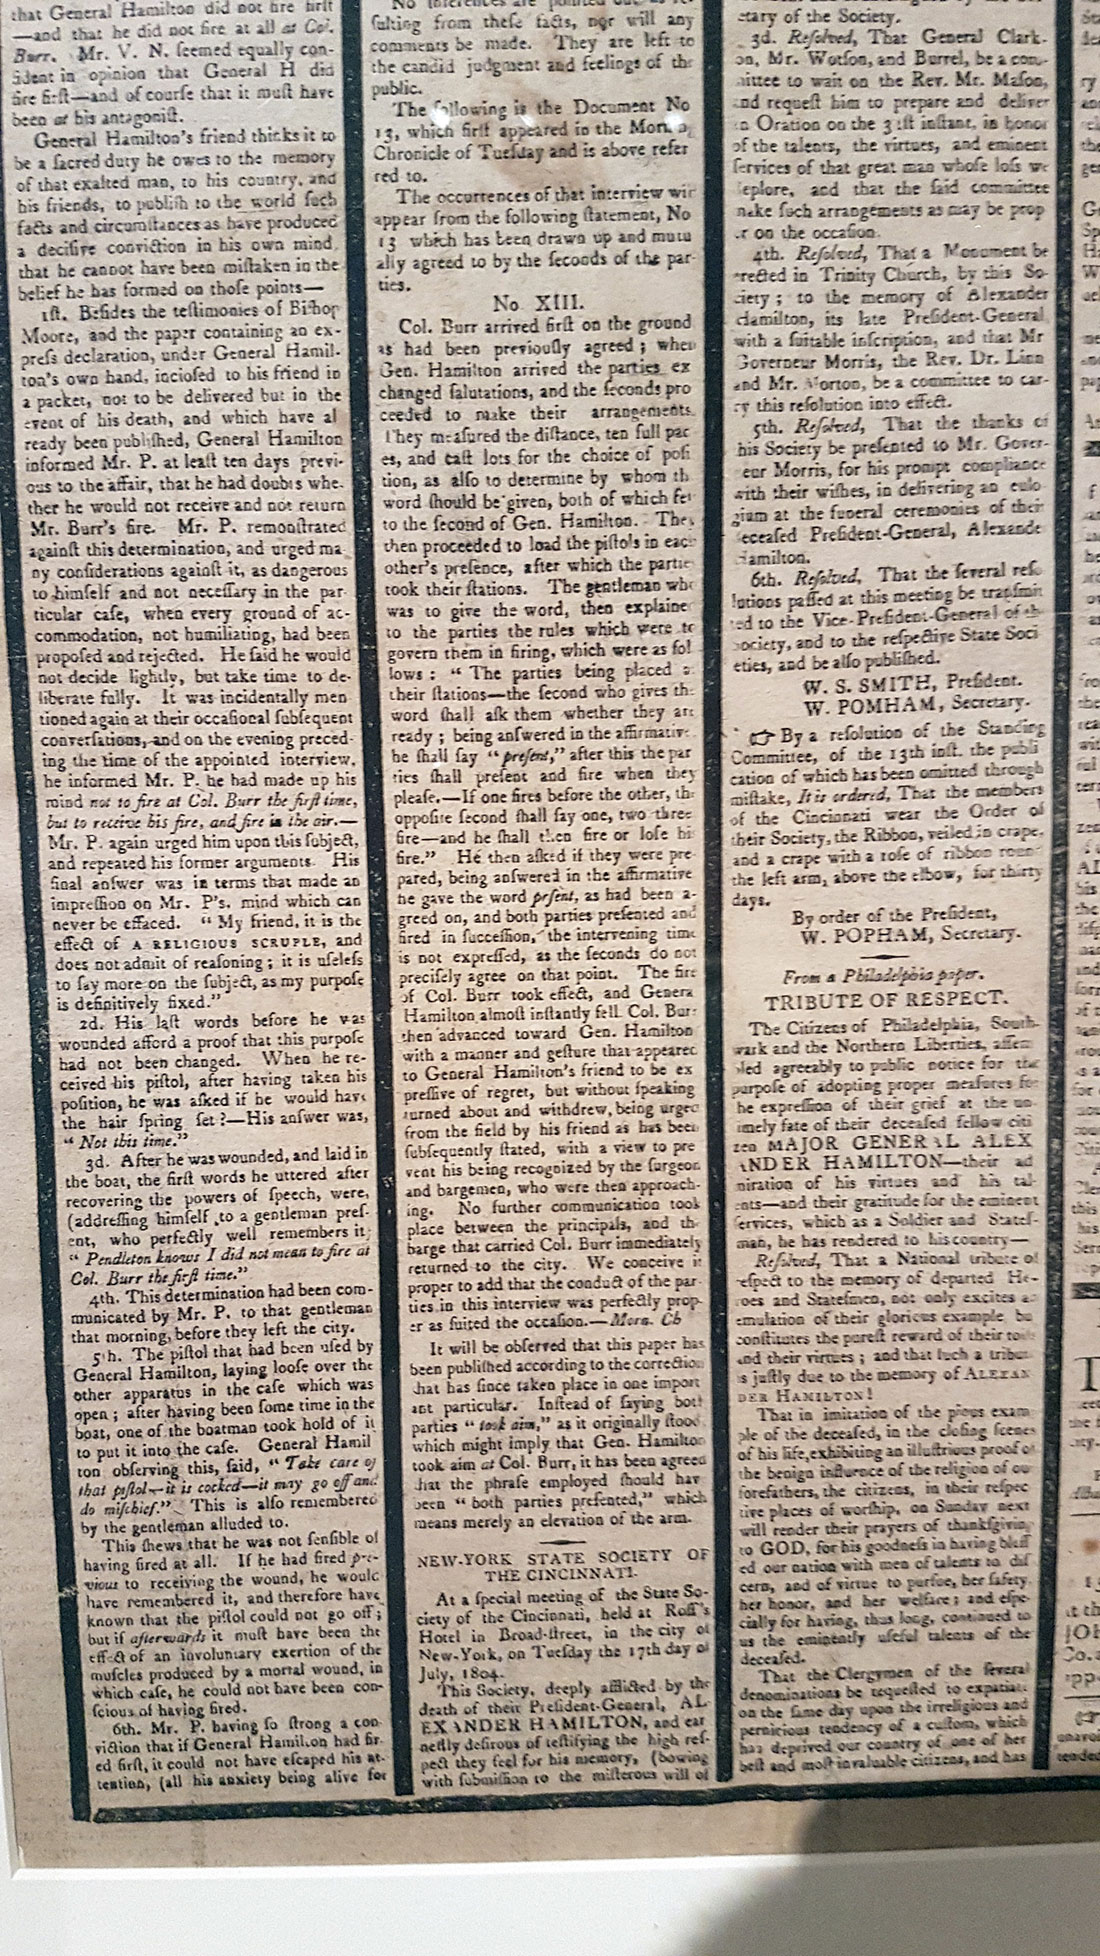 that General Hamilton did not fire first
—and that he did not fire at all at Col.
Burr. Mr. V. N. seemed equally con-
fident in opinion that General H did
fire first—and of course that it must have
been at his antagonist.
General Hamilton's friend thicks it to
be a sacred duty he owes to the memory
of that exalted man, to his country, and
his friends, to publish to the world such
facts and circumstances as have produced
a decisive conviction in his own mind,
that he cannot have been mistaken in the
belief he has formed on those points—
1st. Besides the testimonies of Bishop
Moore, and the paper containing an ex-
press declaration, under General Hamil-
ton's own hand, inclosed to his friend in
a packet, not to be delivered but in the
event of his death, and which have al
ready been published, General Hamilton
informed Mr. P. at least ten days previ-
ous to the affair, that he had doubts whe-
ther he would not receive and not return
Mr. Burr's fire. Mr. P. remonstrated
against this determination, and urged ma
ny considerations against it, as dangerous
to himself and not necessary in the par
ticular case, when every ground of ac-
commodation, not humiliating, had been
proposed and rejected. He said he would
not decide lightly, but take time to de-
liberate fully. It was incidentally men
tioned again at their occasional subsequent
conversations, and on the evening preced-
ing the time of the appointed interview,
he informed Mr. P. he had made up his
mind not to fire at Col. Burr the first time,
but to receive his fire, and fire in the air.—
Mr. P. again urged him upon this subject,
and repeated his former arguments. His
final answer was in terms that made an
impression on Mr. P's. mind which can
never be effaced. "My friend, it is the
effect of A RELIGIOUS SCRUPLE, and
does not admit of reasoning; it is useless
to say more on the subject, as my purpose
is definitively fixed."
2d. His last words before he was
wounded afford a proof that this purpose
had not been changed. When he re-
ceived his pistol, after having taken his
position, he was asked if he would have
the hair spring set?—His answer was,
"Not this time."
3d. After he was wounded, and laid in
the boat, the first words he uttered after
recovering the powers of speech, were,
(addressing himself to a gentleman pres-
ent, who perfectly well remembers it)
"Pendleton knows I did not mean to fire at
Col. Burr the first time."
4th. This determination had been com-
municated by Mr. P. to that gentleman
that morning, before they left the city.
5th. The pistol that had been used by
General Hamilton, laying loose over the
other apparatus in the case which was
open; after having been some time in the
boat, one of the boatman took hold of it
to put it into the case. General Hamil
ton observing this, said, "Take care of
that pistol—it is cocked—it may go off and
do mischief." This is also remembered
by the gentleman alluded to.
This shews that he was not sensible of
having fired at all. If he had fired pre-
vious to receiving the wound, he would
have remembered it, and therefore have
known that the pistol could not go off;
but if afterwards it must have been the
effect of an involuntary exertion of the
muscles produced by a mortal wound, in
which case, he could not have been con-
scious of having fired.
6th. Mr. P. having so strong a con
viction that if General Hamilton had fir-
ed first, it could not have escaped his at-
tention, (all his anxiety being alive for
No inferences are pointed out as re-
sulting from these facts, nor will any
comments be made. They are left to
the candid judgment and feelings of the
public.
The following is the Document No
13, which first appeared in the
Chronicle of Tuesday and is above refer
red to.
The occurrences of that interview wil
appear from the following statement, No
13 which has been drawn up and mutu
ally agreed to by the seconds of the par-
ties.
No XIII.
Col. Burr arrived first on the ground
as had been previously agreed; when
Gen. Hamilton arrived the parties ex
changed salutations, and the seconds pro
ceeded to make their arrangements.
They measured the distance, ten full pac
es, and cast lots for the choice of posi
tion, as also to determine by whom th
word should be given, both of which fel
to the second of Gen. Hamilton. They
then proceeded to load the pistols in each
other's presence, after which the partie
took their stations. The gentleman who
was to give the word, then explained
to the parties the rules which were to
govern them in firing, which were as fol
lows: "The parties being placed a
their stations—the second who gives the
word shall ask them whether they are
ready; being answered in the affirmative
he shall say "present," after this the par
ties shall present and fire when they
please.—If one fires before the other, the
opposite second shall say one, two three
fire—and he shall then fire or lose his
fire." He then asked if they were pre-
pared, being answered in the affirmative
he gave the word prsent, as had been a-
greed on, and both parties presented and
fired in succession, the intervening time
is not expressed, as the seconds do not
precisely agree on that point. The fire
of Col. Burr took effect, and Genera
Hamilton almost instantly fell. Col. Burr
then advanced toward Gen. Hamilton
with a manner and gesture that appeared
to General Hamilton's friend to be ex
pressive of regret, but without speaking
turned about and withdrew, being urged
from the field by his friend as has been
subsequently stated, with a view to pre
vent his being recognized by the surgeon
and bargemen, who were then approach-
ing. No further communication took
place between the principals, and the
barge that carried Col. Burr immediately
returned to the city. We conceive it
proper to add that the conduct of the par-
ties in this interview was perfectly prop-
er as suited the occasion.—Morn. Ch
It will be observed that this paper has
been published according to the correction
that has since taken place in one import
ant particular. Instead of saying both
parties "took aim," as it originally stood,
which might imply that Gen. Hamilton
took aim at Col. Burr, it has been agreed
that the phrase employed should hav
been "both parties presented," which
means merely an elevation of the arm.
NEW-YORK STATE SOCIETY OF
THE CINCINNATI.
At a special meeting of the State So-
ciety of the Cincinnati, held at Ross's
Hotel in Broad-street, in the city of
New-York, on Tuesday the 17th day of
July, 1804.
This Society, deeply afflicted by the
death of their President-General, AL-
EXANDER HAMILTON, and ear
nestly desirous of testifying the high res-
pect they feel for his memory, (bowing
with submission to the misterous will of
etary of the Society.
3d. Resolved, That General Clark-
on, Mr. Wotson, and Burrel, be a com-
mittee to wait on the Rev. Mr. Mason,
and request him to prepare and deliver
an Oration on the 31st instant, in honor
of the talents, the virtues, and eminent
services of that great man whose loss we
deplore, and that the said committee
make such arrangements as may be prop
er on the occasion.
4th. Resolved, That a Monument be
erected in Trinity Church, by this So-
ciety; to the memory of Alexander
Hamilton, its late President-General
with a suitable inscription, and that Mr
Governeur Morris, the Rev. Dr. Linn
and Mr. Morton, be a committee to car-
ry this resolution into effect.
5th. Resolved, That the thanks of
his Society be presented to Mr. Gover-
eur Morris, for his prompt compliance
with their wishes, in delivering an eulo
gium at the funeral ceremonies of their
deceased President-General, Alexande
Hamilton.
6th. Resolved, That the several reso
lutions passed at this meeting be transmit
ted to the Vice-President-General of th
society, and to the respective State Soci
eties, and be also published.
W. S. SMITH, President.
W. POMHAM, Secretary.
☞ By a resolution of the Standing
Committee, of the 13th inst. the publi
cation of which has been omitted through
mistake, It is ordered, That the members
of the Cincinnati wear the Order of
their Society, the Ribbon, veiled in crape,
and a crape with a rose of ribbon round
the left arm, above the elbow, for thirty
days.
By order of the President,
W. POPHAM, Secretary.
From a Philadelphia paper.
TRIBUTE OF RESPECT.
The Citizens of Philadelphia, South-
wark and the Northern Liberties, assem
bled agreeably to public notice for the
purpose of adopting proper measures for
he expression of their grief at the un-
timely fate of their deceased fellow citi
zen MAJOR GENERAL ALEX
ANDER HAMILTON—their ad
miration of his virtues and his tal-
ents—and their gratitude for the eminent
services, which as a Soldier and States-
man, he has rendered to his country—
Resolved, That a National tribute of
respect to the memory of departed He-
roes and Statesmen, not only excites an
emulation of their glorious example, bu
constitutes the purest reward of their toils
and their virtues; and that such a tribute
is justly due to the memory of ALEXAN
DER HAMILTON!
That in imitation of the pious exam
ple of the deceased, in the closing scenes
of his life, exhibiting an illustrious proof of
the benign influence of the religion of our
forefathers, the citizens, in their respec
tive places of worship, on Sunday next
will render their prayers of thanksgiving
to GOD, for his goodness in having bless
ed our nation with men of talents to dis
cern, and of virtue to pursue, her safety
her honor, and her welfare; and espe-
cially for having, thus long, continued to
us the eminently useful talents of the
deceased.
That the Clergymen of the several
denominations be requested to expatiate
on the same day upon the irreligious and
pernicious tendency of a custom, which
has deprived our country of one of her
best and most invaluable citizens, and has